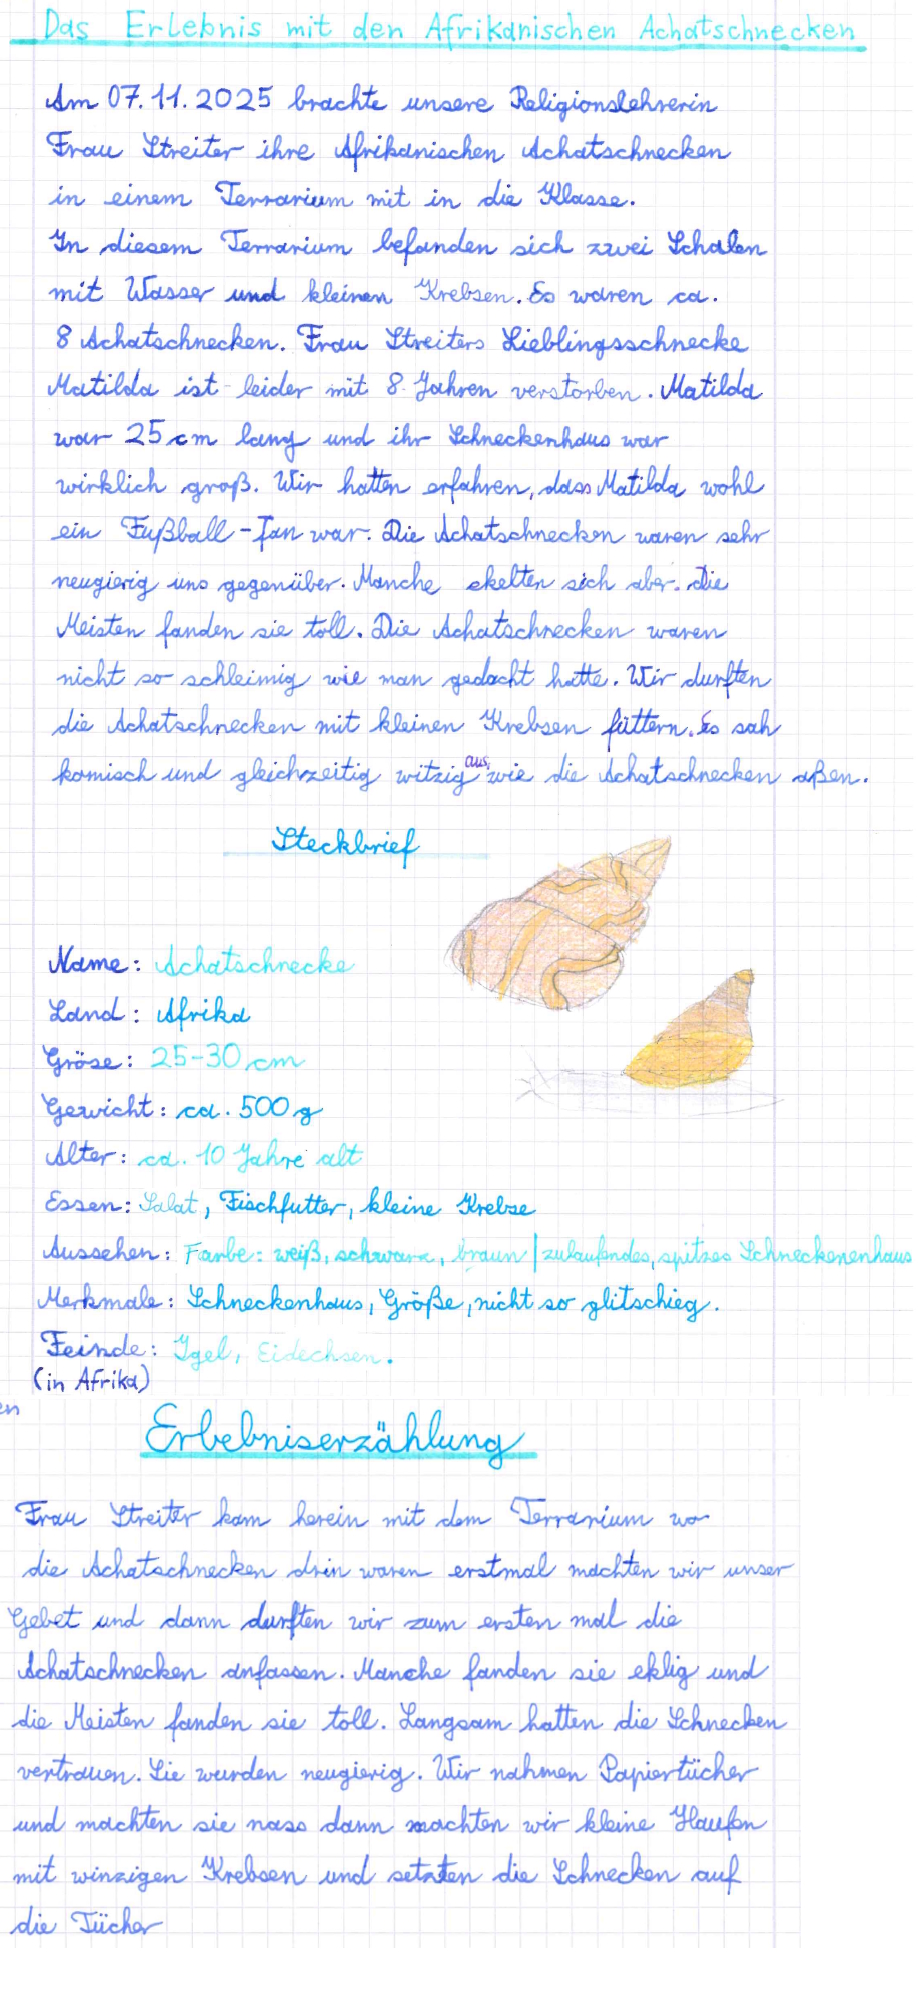 Das Erlebnis mit den Afrikanischen Achatschnecken
Am 07.11.2025 brachte unsere Religionslehrerin
Frau Streiter ihre Afrikanischen Achatschnecken
in einem Terrarium mit in die Klasse.
In diesem Terrarium befanden sich zwei Schalen
mit Wasser und kleinen Krebsen. Es waren ca.
8 Achatschnecken. Frau Streiters Lieblingsschnecke
Matilda ist leider mit 8 Jahren verstorben. Matilda
war 25 cm lang und ihr Schneckenhaus war
wirklich groß. Wir hatten erfahren, dass Matilda wohl
ein Fußball-Fan war. Die Achatschnecken waren sehr
neugierig uns gegenüber. Manche ekelten sich aber. die
Meisten fanden sie toll. Die Achatschnecken waren
nicht so schleimig wie man gedacht hatte. Wir durften
die Achatschnecken mit kleinen Krebsen füttern. Es sah
komisch und gleichzeitig witzig aus, wie die Achatschnecken aßen.
Steckbrief
Name: Achatschnecke
Land: Afrika
Gröse: 25-30 cm
Gewicht: ca. 500 g
Alter: ca. 10 Jahre alt
Essen: Salat, Fischfutter, kleine Krebse
Aussehen: Farbe: weiß, schwarz, braun | zulaufendes, spitzes Schneckenenhaus
Merkmale: Schneckenhaus, Größe, nicht so glitschieg.
Feinde: Igel, Eidechsen.
(in Afrika)
en
Erbebniserzählung
Frau Streiter kam herein mit dem Terrarium wo
die Achatschnecken drin waren erstmal machten wir unser
Gebet und dann durften wir zum ersten mal die
Achatschnecken anfassen. Manche fanden sie eklig und
die Meisten fanden sie toll. Langsam hatten die Schnecken
vertrauen. Sie wurden neugierig. Wir nahmen Papiertücher
und machten sie nass dann machten wir kleine Haufen
mit winzigen Krebsen und setzten die Schnecken auf
die Tücher